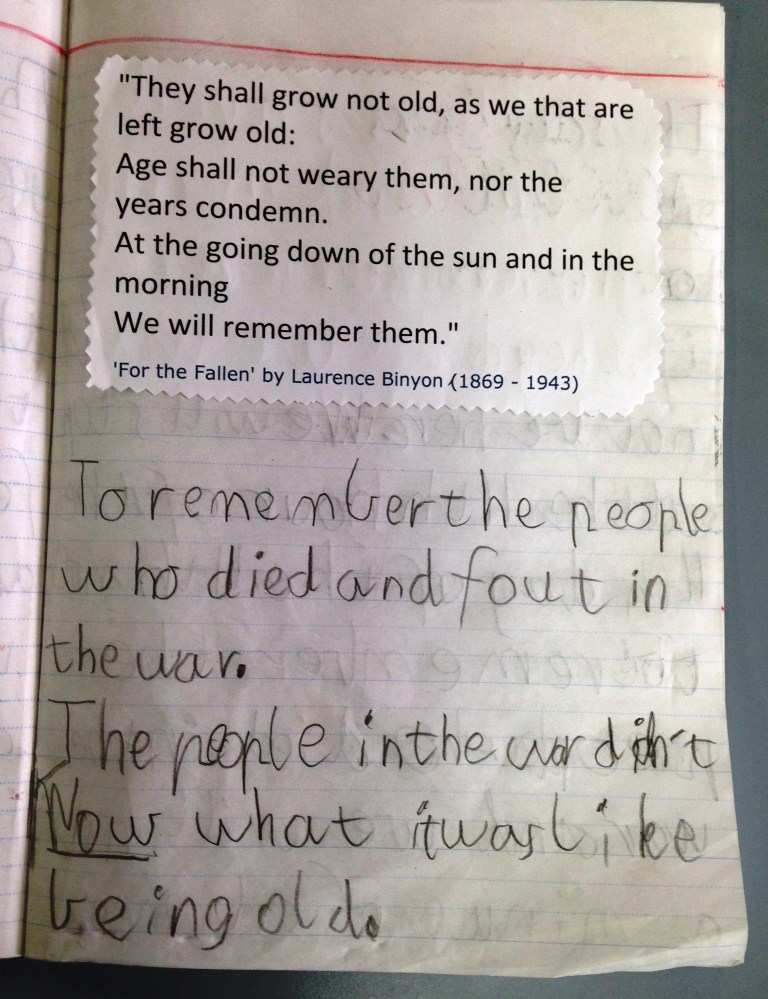 "They shall grow not old, as we that are
left grow old:
Age shall not weary them, nor the
years condemn.
At the going down of the sun and in the
morning
We will remember them."
'For the Fallen' by Laurence Binyon (1869 - 1943)
To remember the people
who died and fout in
the war.
The people in the war didn't
Now what it was like
being old.